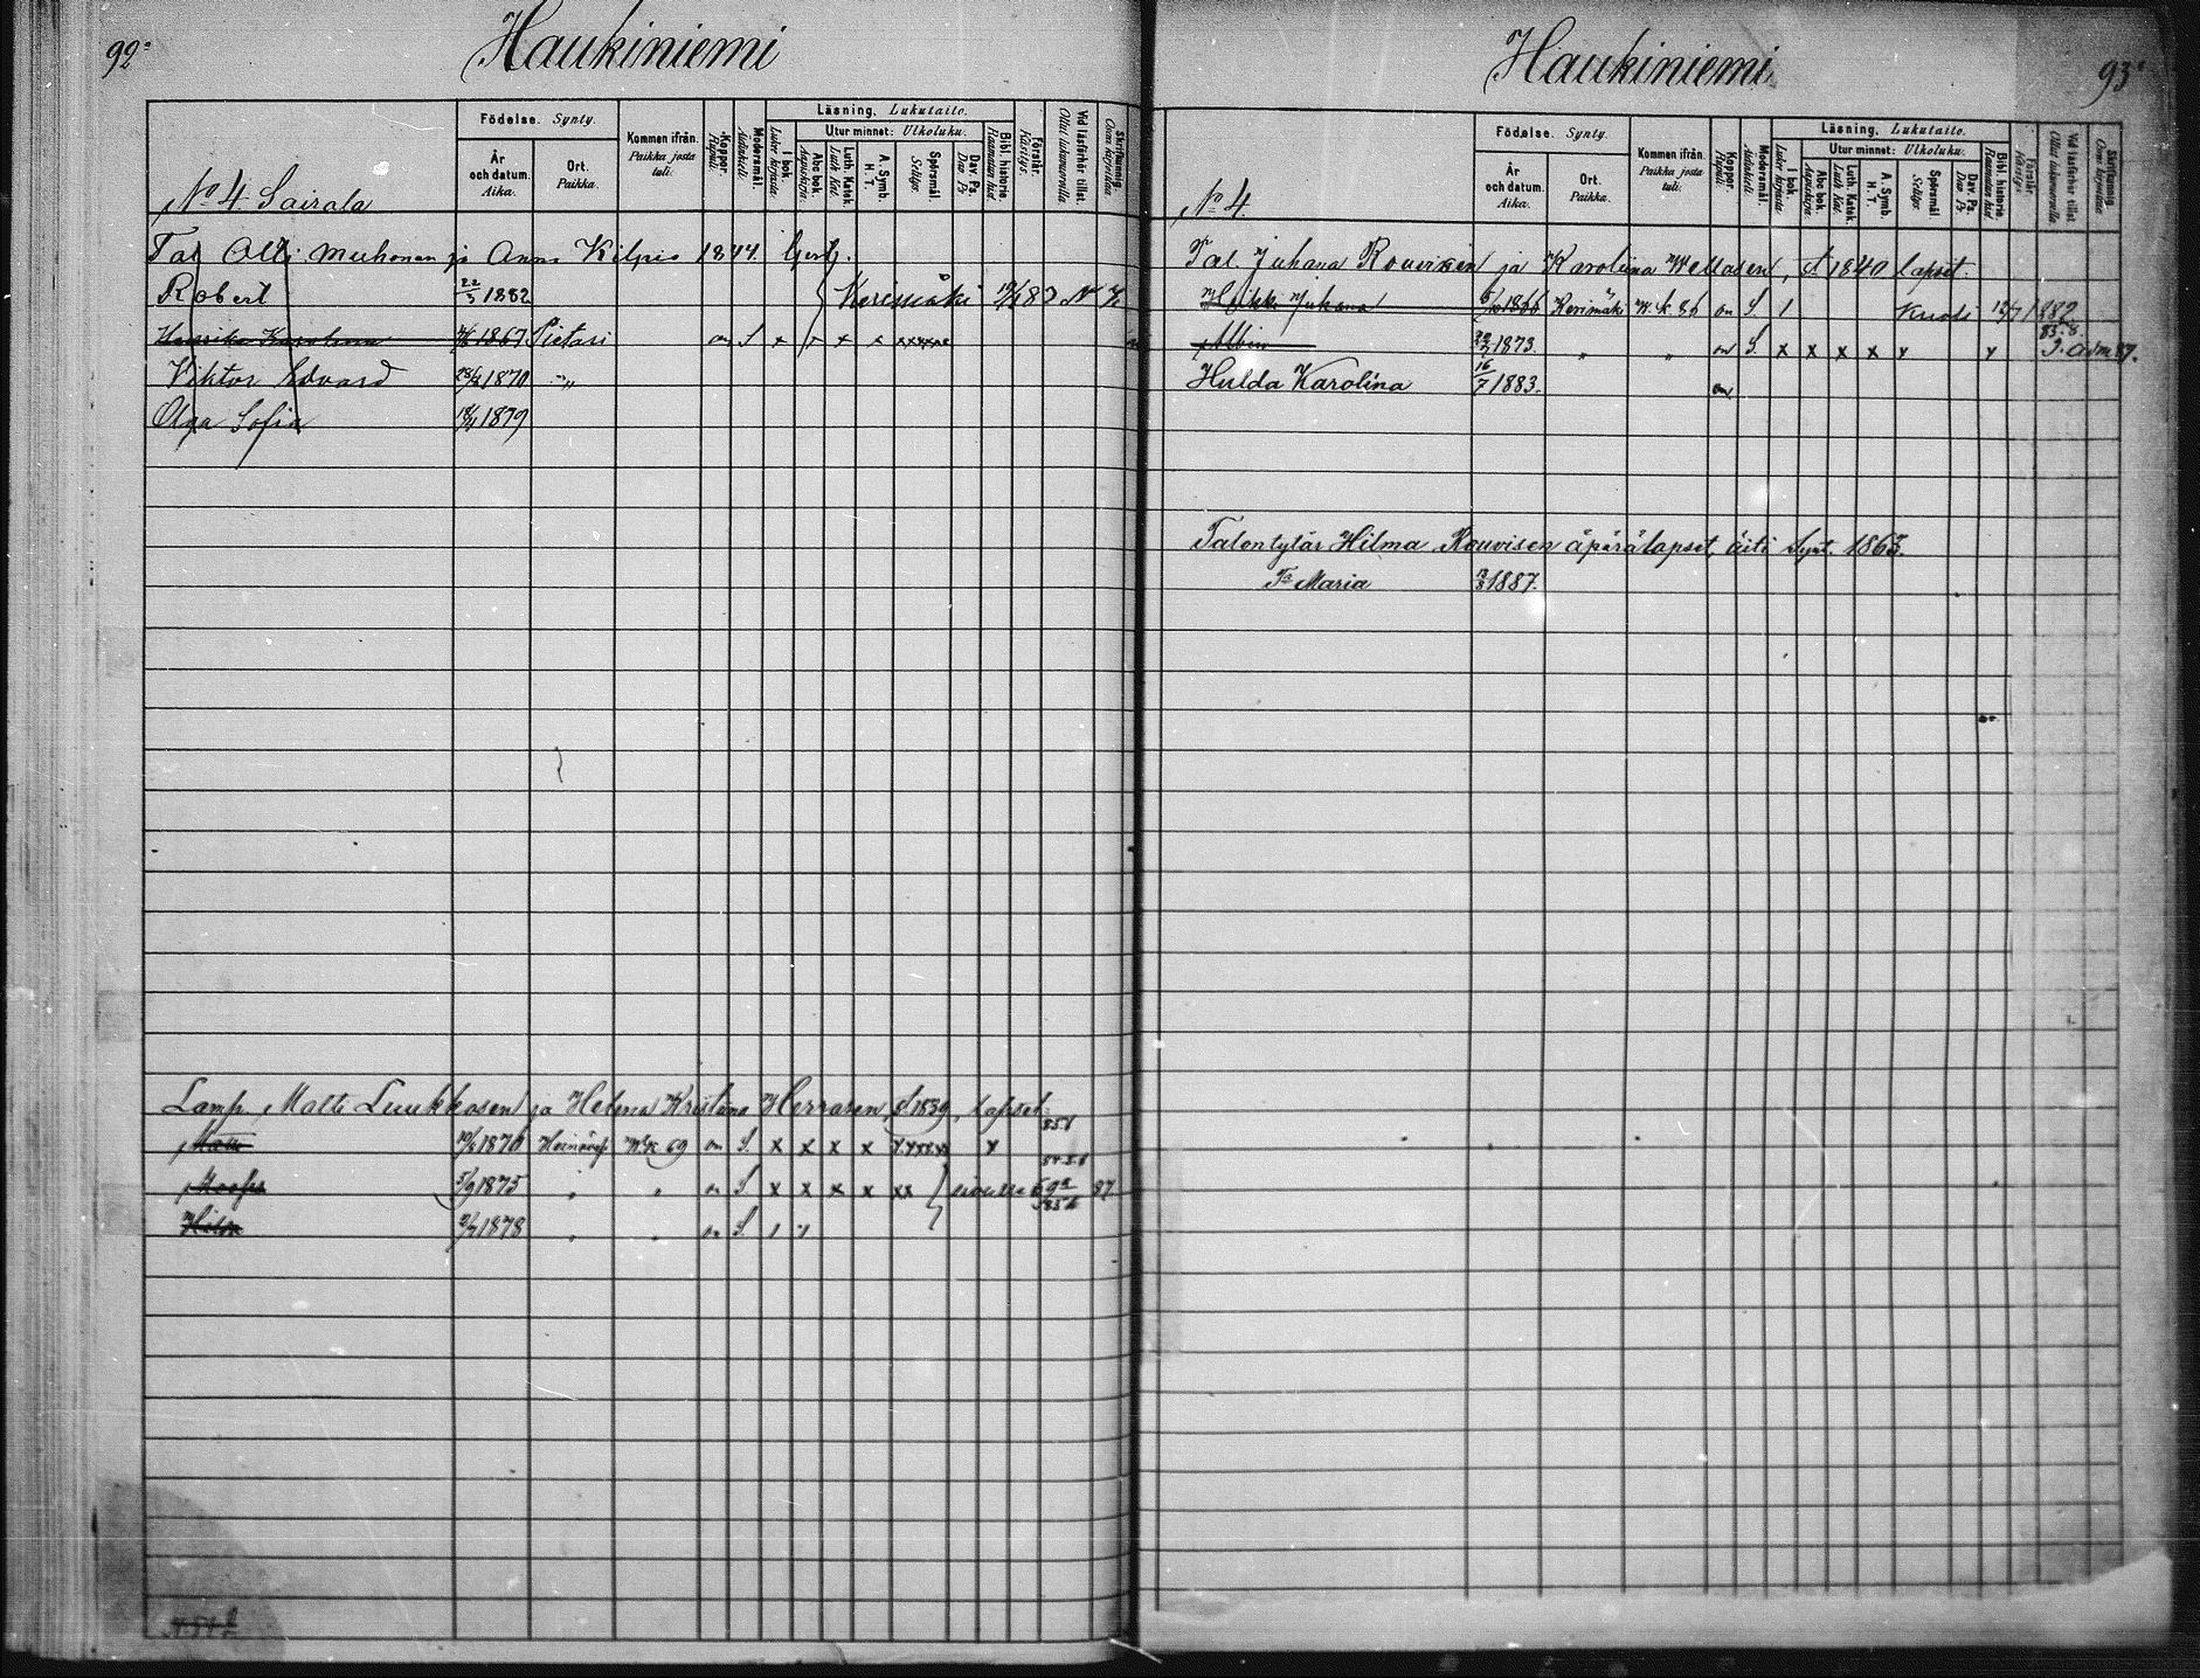 92
Haukiniemi
Födelse. Synty.
År och datum. Aika.
Ort. Paikka.
Kommen ifrån. Paikka josta tuli.
Koppor. Rupuli.
Modersmål. Äidinkieli.
Läsning. Lukutaito.
I bok. Lukee kirjasta.
Utur minnet: Ulkoluku.
Abc bok. Aapiskirja.
Luth. Katek. Luth Kat.
A. Symb. H. T.
Spörsmål. Selitys.
Dav. Ps. Dav. Ps
Bibl. historia. Raamatun hist.
Förstår. Käsitys.
Vid läsförhör tillst. Ollut lukumuroilla
Skriftkunnig. Osaa kirjoittaa
No 4 Sairala
Tal Olli Muhonen ja Anna Kilpis 1844.
Robert 22/3 1882 Kerimäki
Karolina 1867 Pietari on S x x x x xxxxx
Viktor Edvard 1870 "
Olga Sofia 1879
Lamp. Matti Luukkosen ja Helena Kristina Herrasen, S 1839, lapset.
Matti 1870 69 on S. x x x x x
5/9 1875 " " on S x x x x xx 87
1878 " " on S.
93
Haukiniemi
Födelse. Synty.
År och datum. Aika.
Ort. Paikka.
Kommen ifrån. Paikka josta tuli.
Koppor. Rupuli.
Modersmål. Äidinkieli.
Läsning. Lukutaito.
I bok. Lukee kirjasta
Utur minnet: Ulkoluku.
Abc bok Aapiskirja.
Luth. Katek. Luth Kat.
A. Symb H. T.
Spörsmål Selitys
Dav. Ps. Dav Ps
Bibl. historia. Raamatun hist
Förstår. Käsitys
Vid läsförhör tillst. Ollut lukumuroilla
Skriftkunnig. Osaa kirjoittaa
No 4.
Tal. Juhana Rouvisen ja Karolina Wellasen, S 1840 lapset.
Heikki Juhana 1866 Kerimäki on S 1 Kuoli 1882
Albin 1873. " " on S. x x x x x x
Hulda Karolina 16/7 1883. on
Talontytär Hilma Rouvisen äpärälapset, äiti Synt. 1863.
Maria 1887.